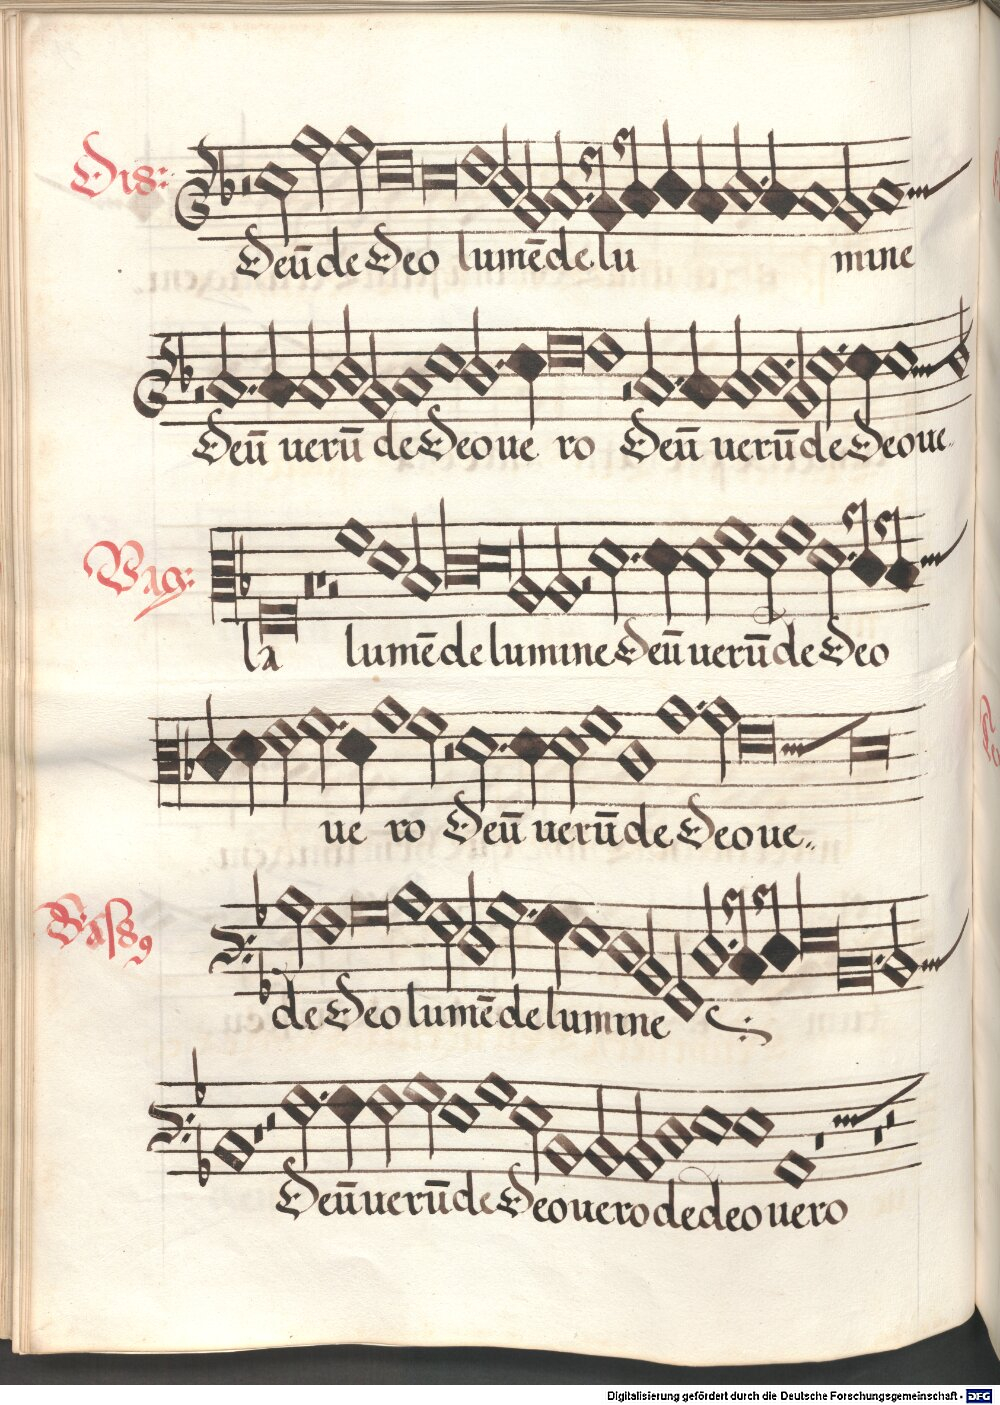 Dis:
Deū de Deo lumē de lu mine
Deū uerū de Deo ue ro Deū uerū de Deo ue
Vag:
la lumē de lumine Deū uerū de Deo
ue ro Deū uerū de Deo ue..
Bass9
de Deo lumē de lumine
Deū uerū de Deo uero de deo uero
Digitalisierung gefördert durch die Deutsche Forschungsgemeinschaft - DFG